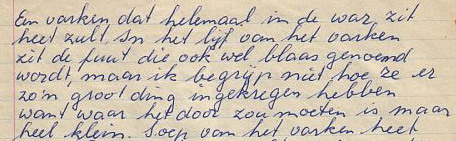 Een varken, dat helemaal in de war zit
heet zult. In het lijf van het varken
zit de fuut die ook wel blaas genoemd
wordt, maar ik begrijp niet hoe ze er
zo'n groot ding ingekregen hebben
want waar het door zou moeten is maar
heel klein. Soep van het varken heet